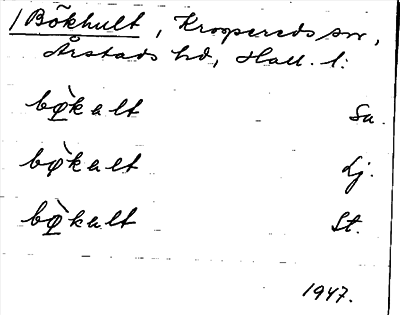 /Bökhult, Krogsereds sn,
Årstads hd, Hall. l:
bø̀kult Sa.
bø̀kult Lj.
bø̀kult St.
1947.